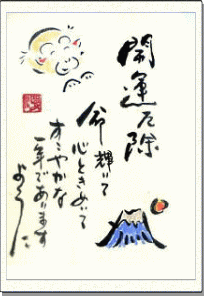 開運厄除
命輝いて
心ときめいて
すこやかな
一年であります
ように